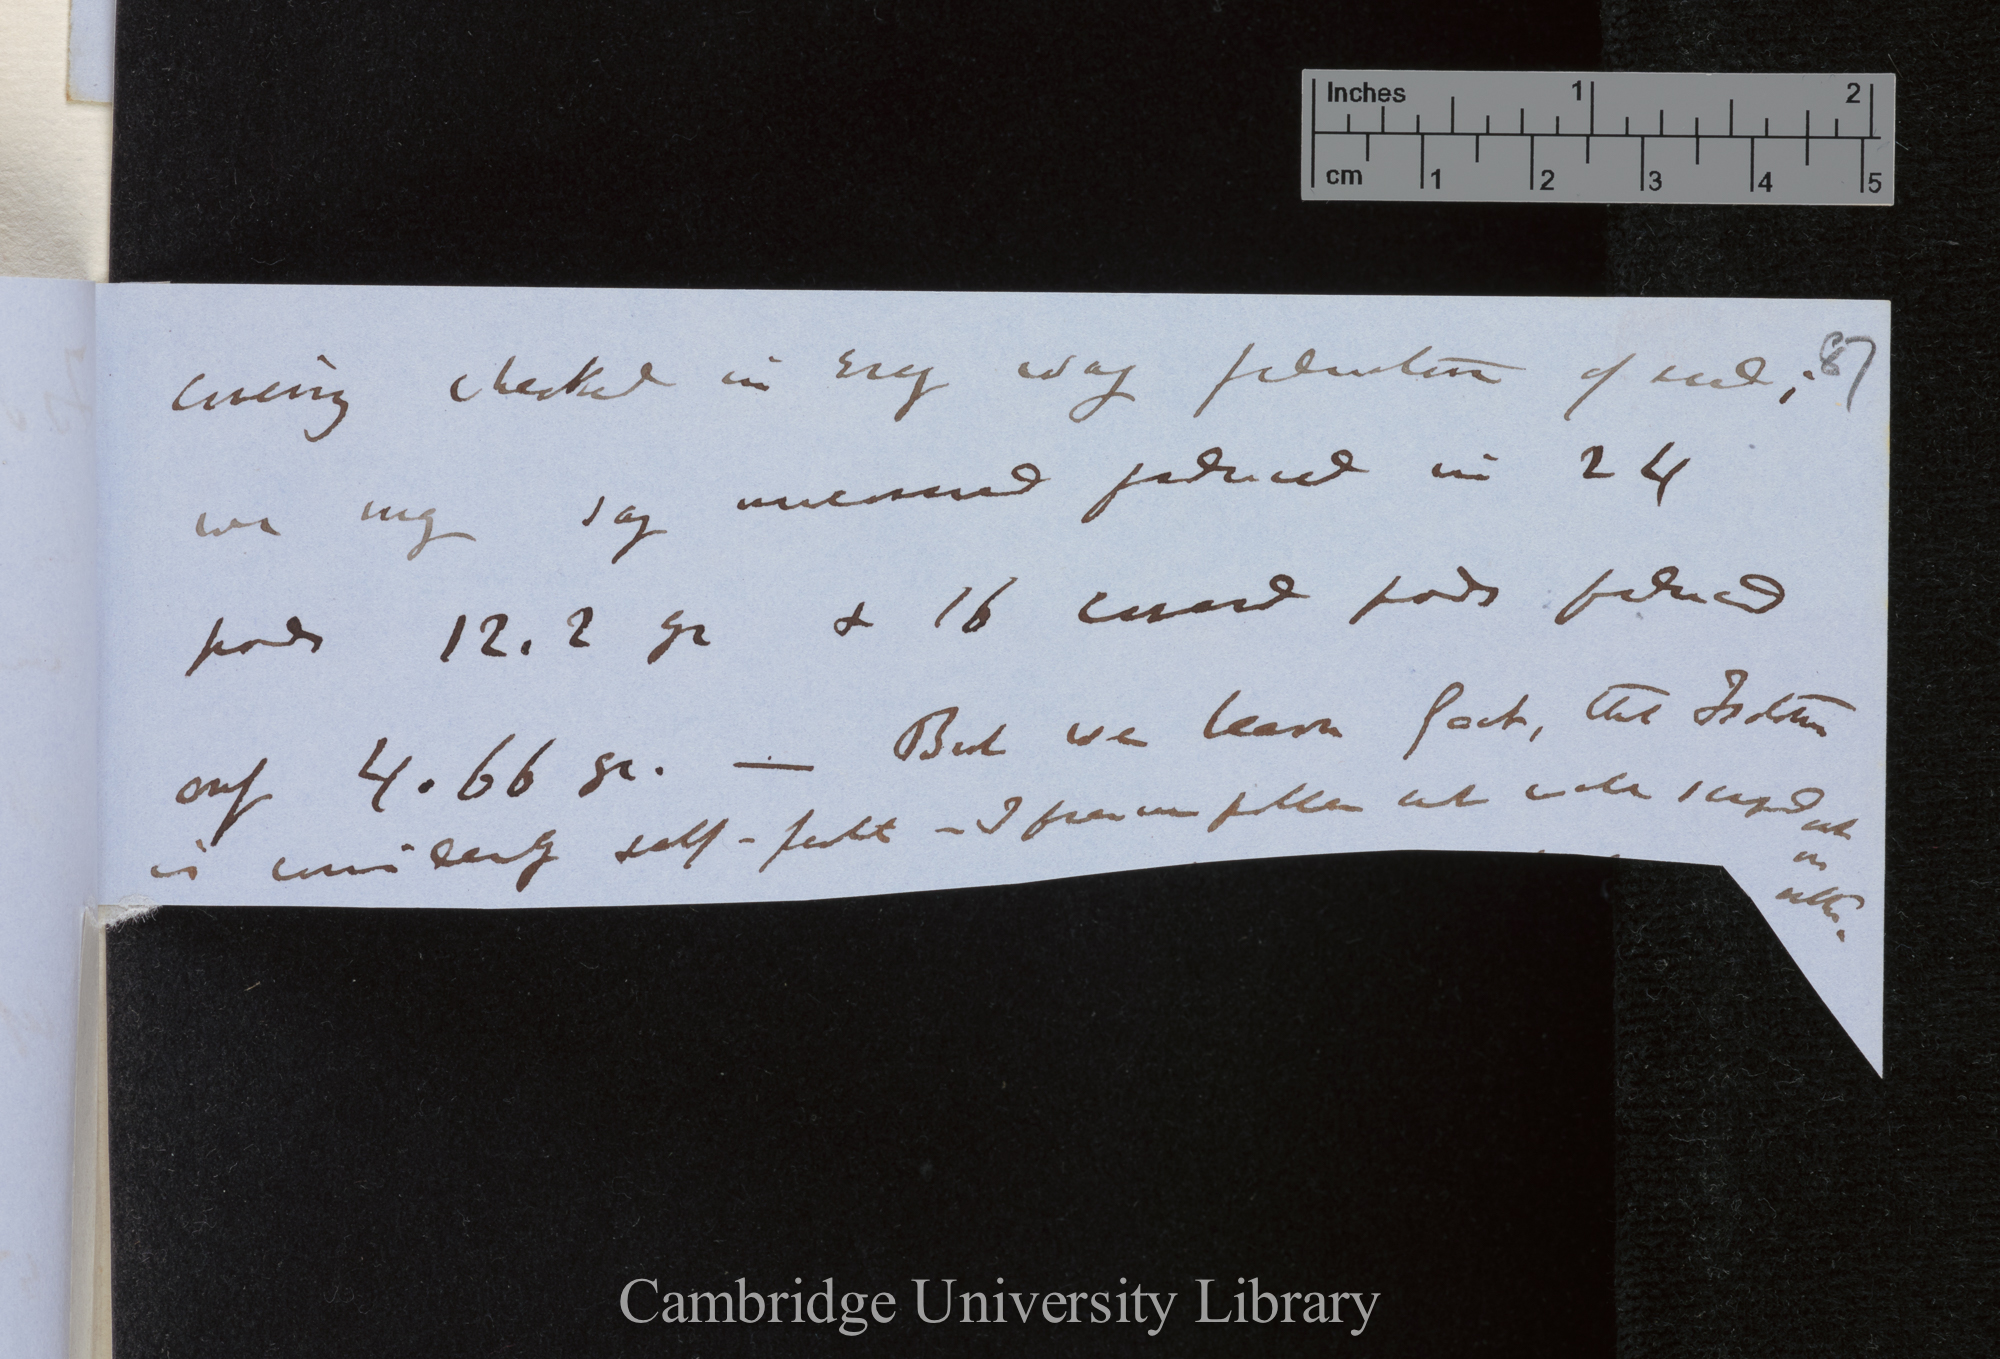 Inches 1 2
cm 1 2 3 4 5
87
covering checked in every way production of seed;
we may say uncovered produced in 24
pods 12.2 gr & 16 covered pods produced
only 4.66 gr. — But we learn fact, that
is considerably self-fertile - I presume pollen
in
Cambridge University Library